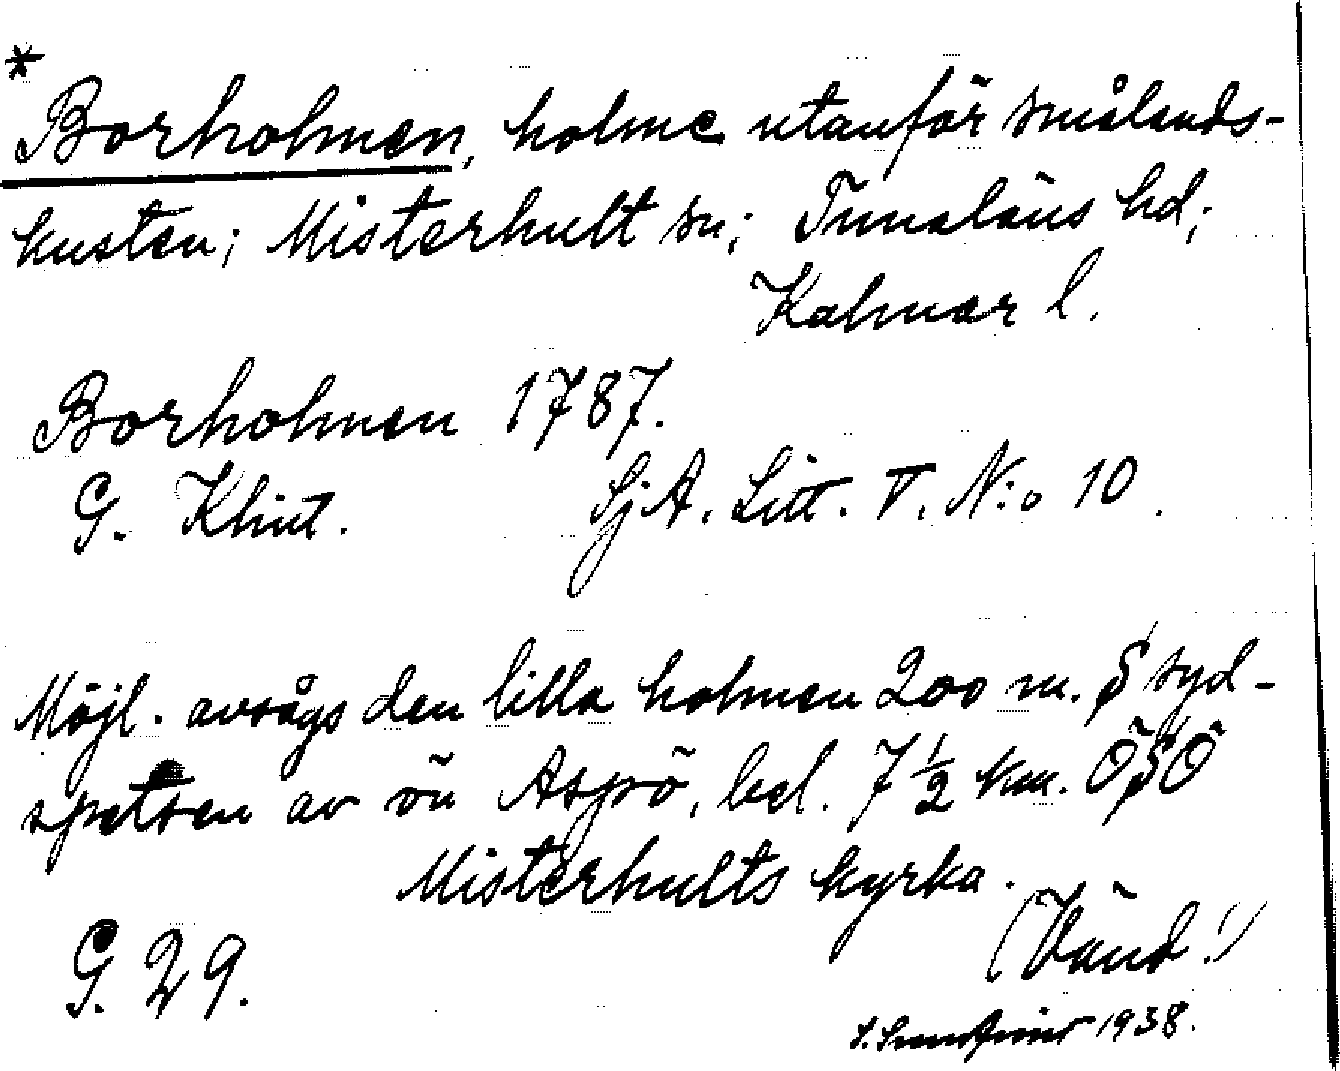 *
Borholmen, holme utanför smålands-
kusten; Misterhult sn; Tunaläns hd;
Kalmar l.
Borholmen 1787.
G. Klint. SjA. Litt. V. N:o 10.
Möjl. avsågs den lilla holmen 200 m. S syd-
spetsen av ön Aspö, bel. 7 1/2 km. ÖSÖ
Misterhults kyrka.
(Vänd!)
G. 29.
1938.